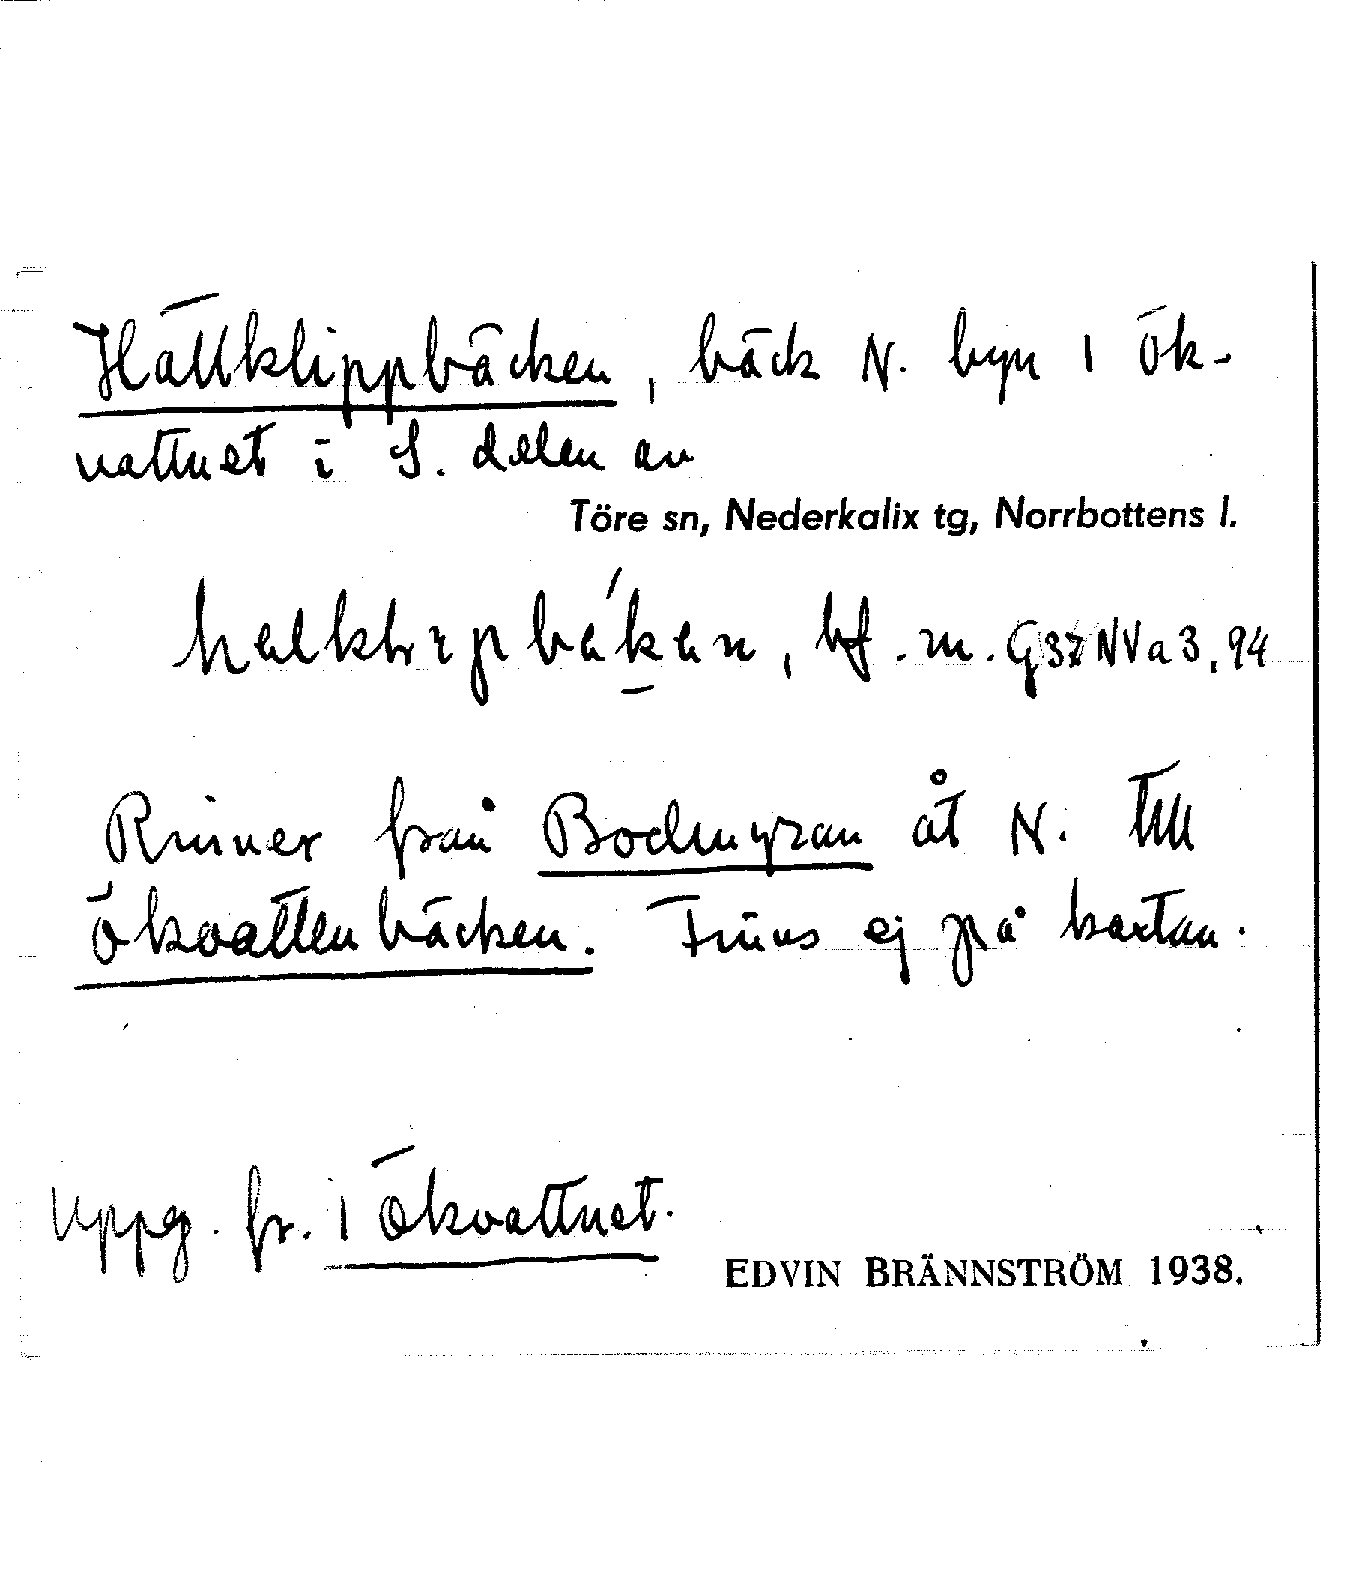 Hällklippbäcken, bäck N. byn 1 Ök-
vattnet i S. delen av
Töre sn, Nederkalix tg, Norrbottens l.
bf. m. G37 NVa3, 94
Rinner från Bodmyran åt N. till
Ökvattenbäcken. Finns ej på kartan.
Uppg. fr. 1 Ökvattnet.
EDVIN BRÄNNSTRÖM 1938.